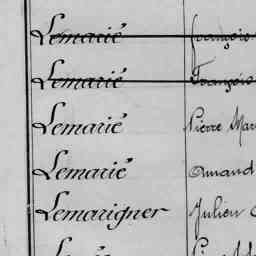 Lemarié François
Lemarié François
Lemarié Pierre Mar
Lemarié Amand
Lemarigner Julien